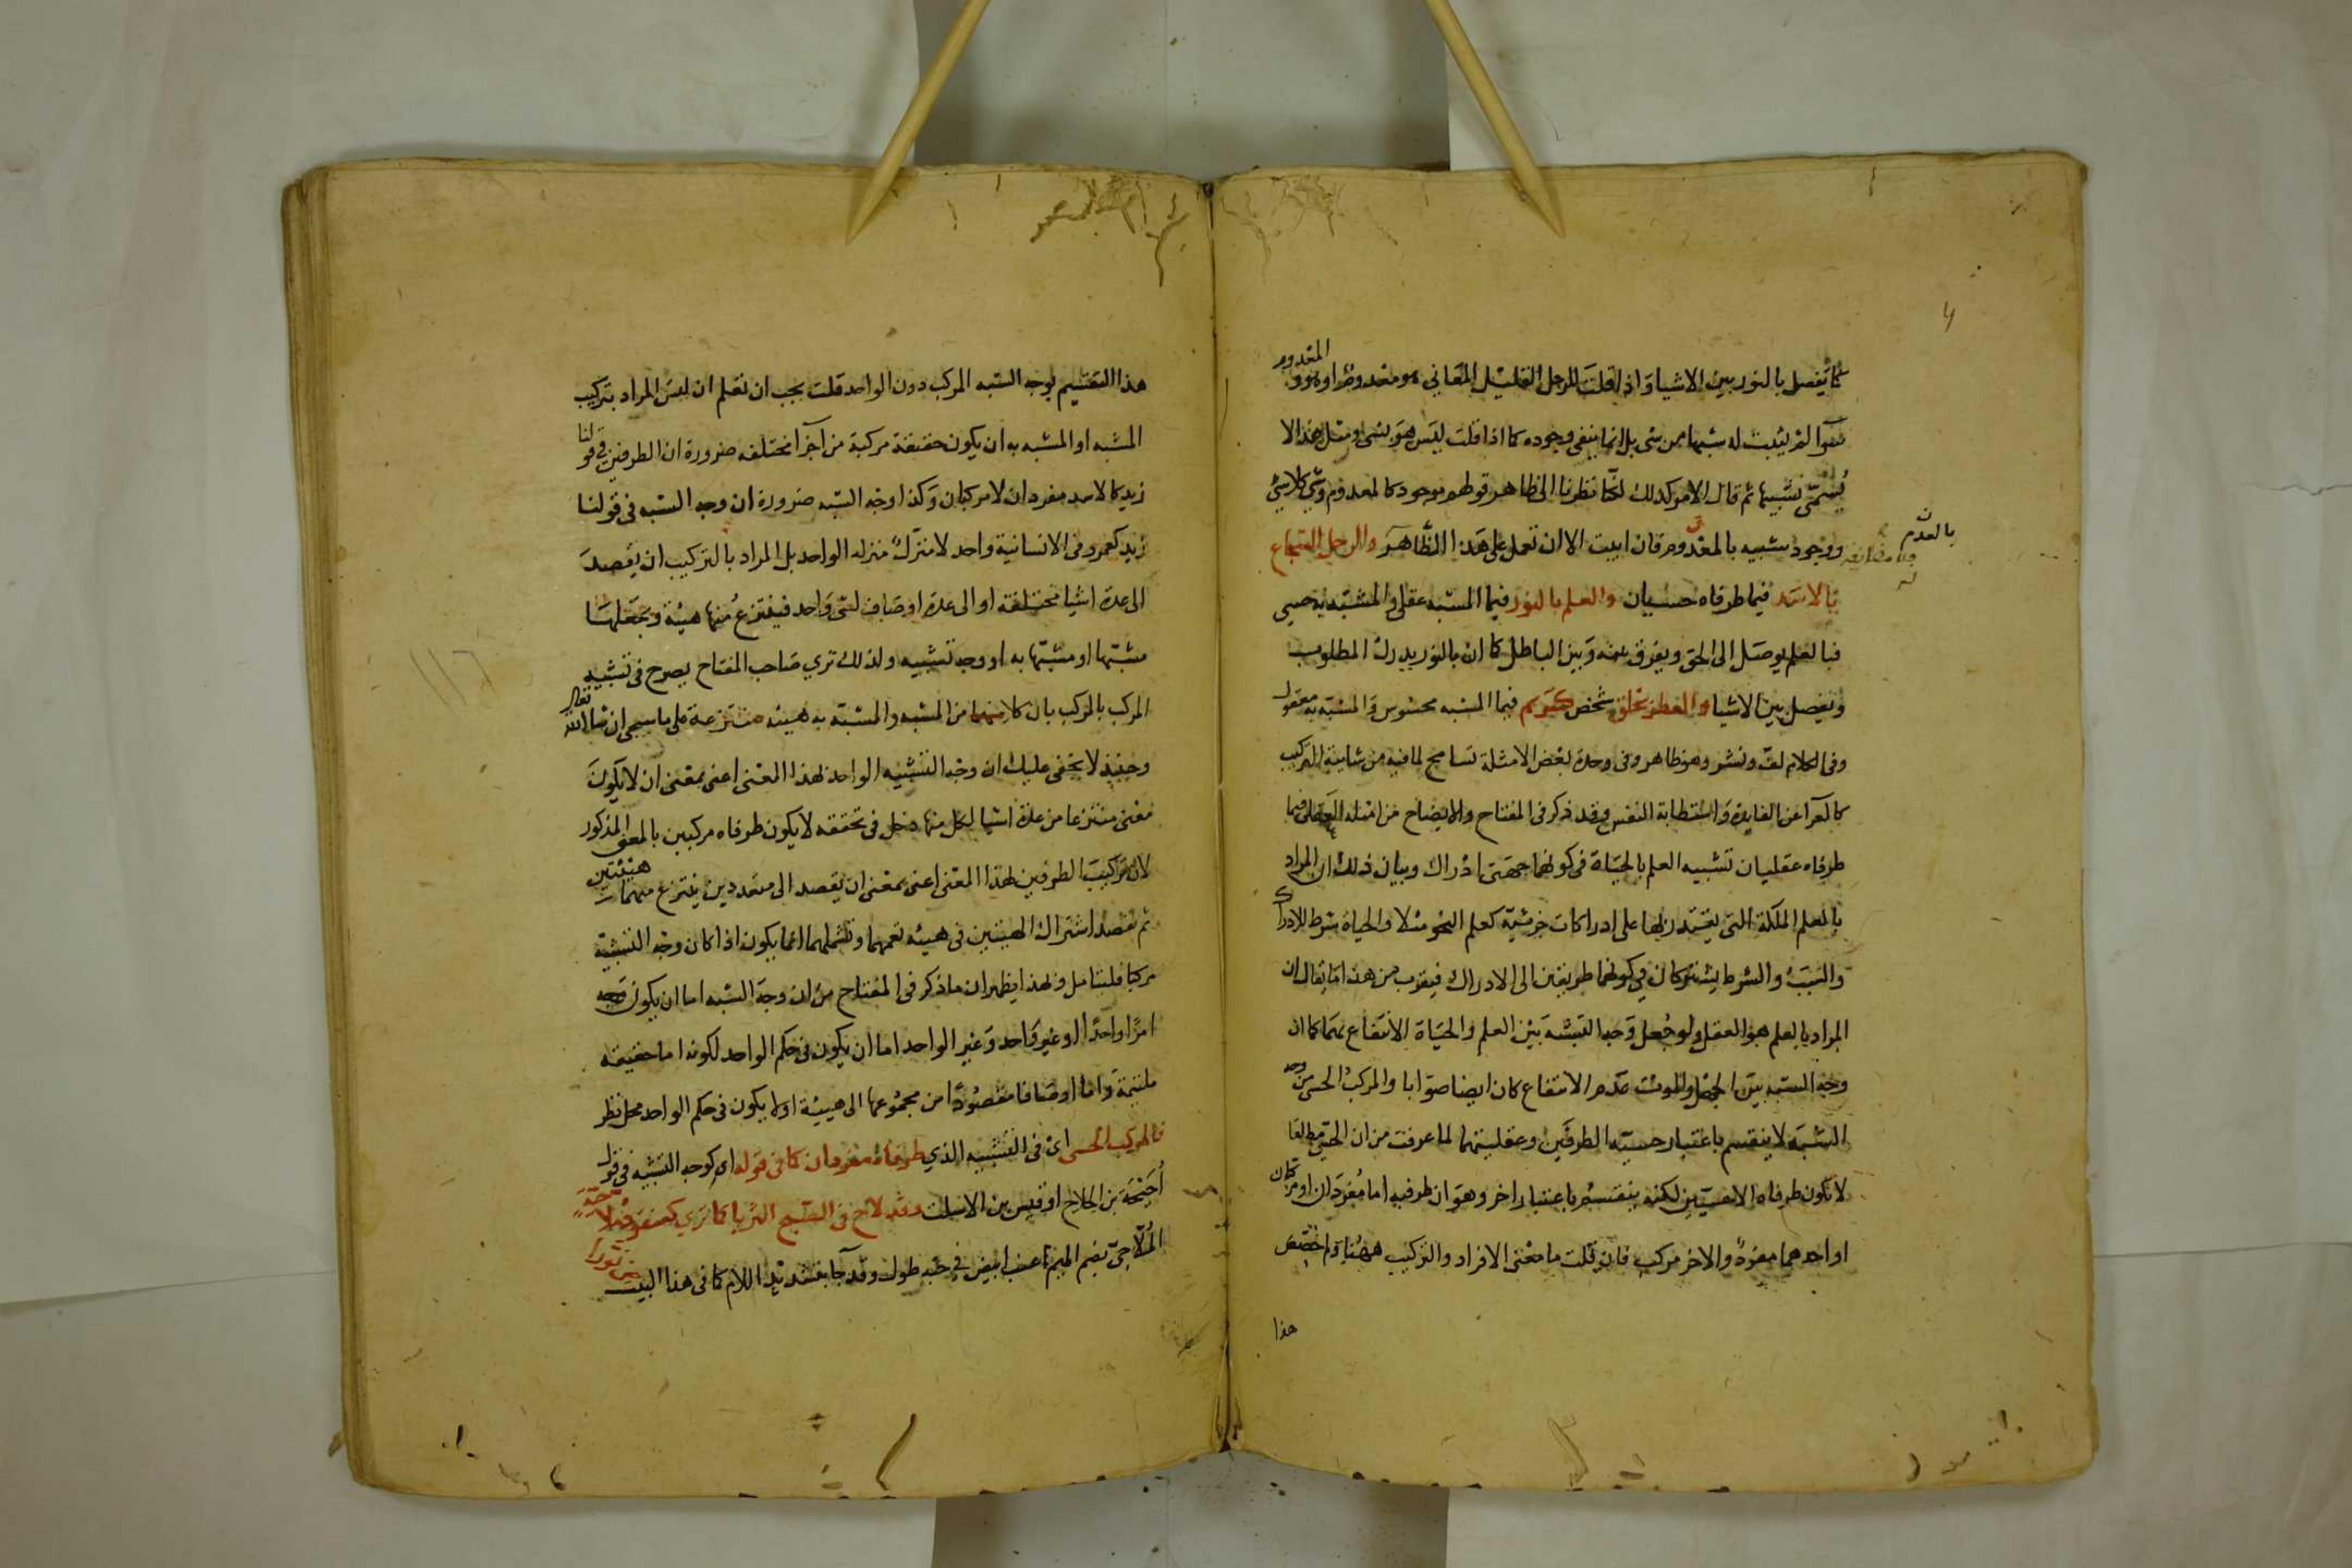 كما يفصل بالنور بين الاشيا واذا قلت للرجل القليل المعاني هو معدوم او هو والمعدوم
سوا لم يثبت له شبها من شى بل انما ينفى وجوده كما اذا قلت ليس هو بشى ومثل هذا لا
يُسمّى تشبيها ثم قال الامر كذلك لكنا نظرنا الى ظاهر قولهم موجود كالمعدوم وشى كلا شى
ووجود شبيه بالعدم فان ابيت الا ان تعمل على هذا الظاهر والرجل الشجاع
بالعدم
بالاسد فيما طرفاه حسيان والعلم بالنور فيما المشبه عقلى والمشبه به حسى
فبالعلم يوصل الى الحق ويفرق بينه وبين الباطل كما ان بالنور يدرك المطلوب
وتفصل بين الاشيا والعطر بخلق شخص كريم فيما المشبه محسوس والمشبه به معقول
وفى الكلام لف ونشر وهو ظاهر وفى وحدة بعض الامثلة تسامح لما فيه من شايبة التركيب
كالعرا عن الفايدة واستطابة النفس وقد ذكر فى المفتاح والايضاح من امثلة العقلى فيما
طرفاه عقليان تشبيه العلم بالحياة فى كونهما جهتى ادراك وبيان ذلك ان المراد
بالعلم الملكة التى يقتدر بها على ادراكات جزئية كعلم النحو مثلا والحياة شرط للادراك
والسبب والشرط يشتركان فى كونهما طريقين الى الادراك فيقرب من هذا ما يقال ان
المراد بالعلم هو العقل ولو جعل وجه الشبه بين العلم والحياة الانتفاع بهما كما ان
وجه الشبه بين الجهل والموت عدم الانتفاع كان ايضا صوابا والمركب الحسى من وجه
الشبه لا ينقسم باعتبار حسية الطرفين وعقليتهما لما عرفت من ان الحسى مطلقا
لا تكون طرفاه الا حسيين لكنه ينقسم باعتبار اخر وهو ان طرفيه اما مفردان او مركبان
او احدهما مفرد والاخر مركب فان قلت ما معنى الافراد والتركيب ههنا ولم خصص
هذا
هذا التقسيم بوجه الشبه المركب دون الواحد قلت يجب ان تعلم ان ليس المراد بتركيب
المشبه او المشبه به ان يكون حقيقة مركبة من اجزا مختلفه ضرورة ان الطرفين فى قولنا
زيد كالاسد مفردان لا مركبان وكذا وجه الشبه ضرورة ان وجه الشبه فى قولنا
زيد كعمرو فى الانسانية واحد لا منزل منزلة الواحد بل المراد بالتركيب ان يقصد
الى عدة اشيا مختلفة او الى عدة اوصاف لشى واحد فينتزع منها هيئة وتجعلها
مشبها او مشبها به او وجه تشبيه ولذلك ترى صاحب المفتاح يصرح فى تشبيه
المركب بالمركب بان كلا منهما من المشبه والمشبه به هيئه منتزعة على ما سيجى ان شا الله تعالى
وحينئذ لا يخفى عليك ان وجه التشبيه الواحد لهذا المعنى اعنى بمعنى ان لا يكون
معنى منتزعا من عدة اشيا لكل منها دخل فى تحققه لا يكون طرفاه مركبين بالمعنى المذكور
لان تركيب الطرفين لهذا المعنى اعنى بمعنى ان يقصد الى متعددين ينتزع منهما هيئتين
ثم تقصد اشتراك الهيئتين فى هيئه تعمهما وتشملهما انما يكون اذا كان وجه التشبيه
مركبا فليتامل ولهذا يظهر ان ما ذكر فى المفتاح من ان وجه الشبه اما ان يكون
امرا واحدا او غير واحد وغير الواحد اما ان يكون فى حكم الواحد لكونه اما حقيقه
ملتيمة واما اوصافا مقصودا من مجموعها الى هيئة او لا يكون فى حكم الواحد محل نظر
فالمركب الحسى اى فى التشبيه الذي طرفاه مفردان كما فى قوله اى كوجه التشبيه فى قول
اُحَيْحَة بن الجلاح او قيس بن الاسلت وقد لاح فى الصبح الثريا كما ترى كعنقود ملاحية
المُلّاحِيّ بضم الميم عنب ابيض فى حبه طول وقد جا بتشديد اللام كما فى هذا البيت حين نورا